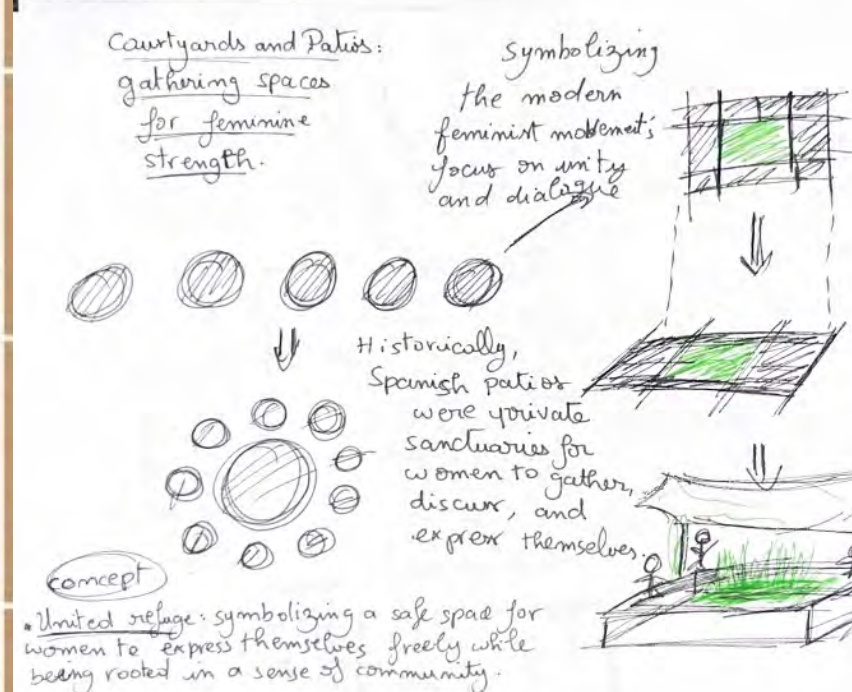 Courtyards and Patios:
gathering spaces
for feminine
strength.
symbolizing
the modern
feminist movement's
focus on unity
and dialogue
Historically,
Spanish patios
were private
sanctuaries for
women to gather,
discuss, and
express themselves.
concept
• United refuge: symbolizing a safe space for
women to express themselves freely while
being rooted in a sense of community.